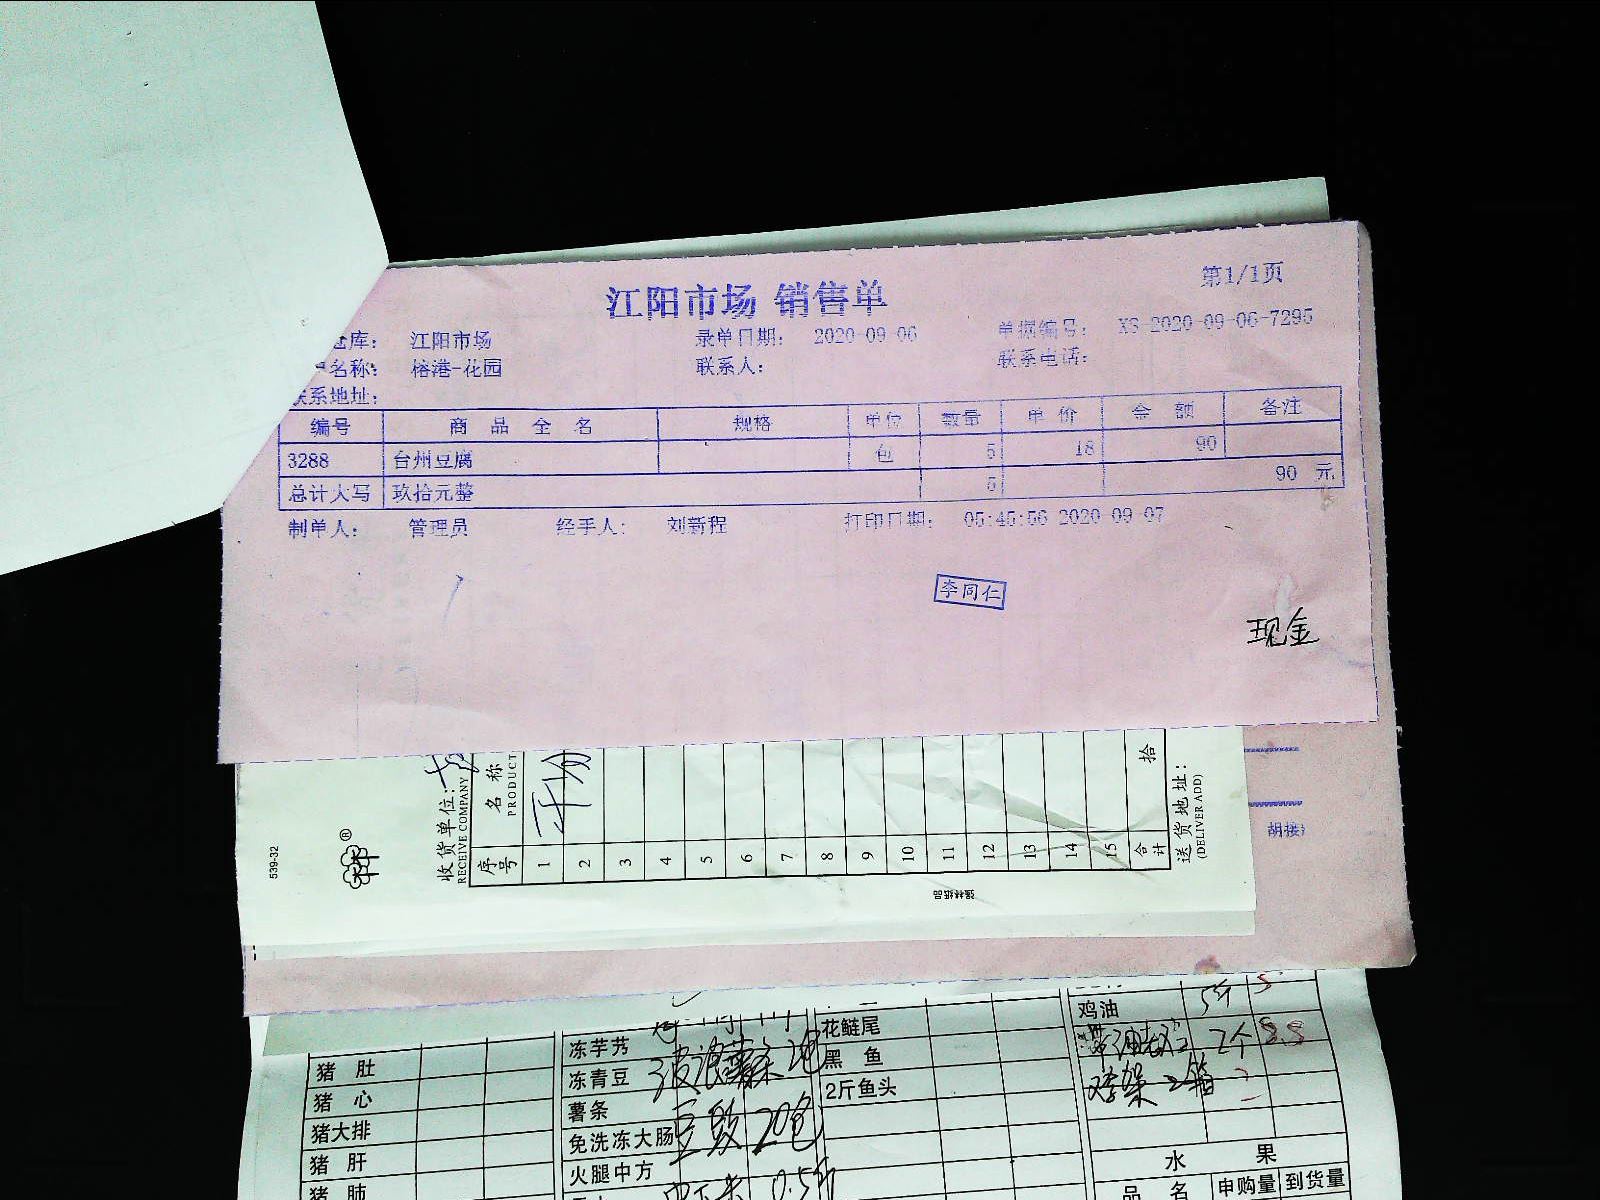 江阳市场 销售单
第1/1页
仓库： 江阳市场 录单日期： 2020-09-06 单据编号： XS-2020-09-06-7295
名称： 榕港-花园 联系人： 联系电话：
联系地址：
编号 商品全名 规格 单位 数量 单价 金额 备注
3288 台州豆腐 包 5 18 90
总计大写 玖拾元整 5 90 元
制单人： 管理员 经手人： 刘新程 打印日期： 05:45:56 2020-09-07
李同仁
现金
539-32
®
收货单位：
RECEIVE COMPANY
序号 名称
PRODUCT
1
2
3
4
5
6
7
8
9
10
11
12
13
14
15
合计 拾
送货地址：
(DELIVER ADD)
强林纸品
胡接
猪肚
猪心
猪大排
猪肝
猪肺
冻芋艿
冻青豆 波浪薯条 2包
薯条
免洗冻大肠 豆豉 20包
火腿中方
0.5斤
花鲢尾
黑鱼
2斤鱼头
鸡油 5斤 5
2个
鸡架 2箱
水果
品名 申购量 到货量